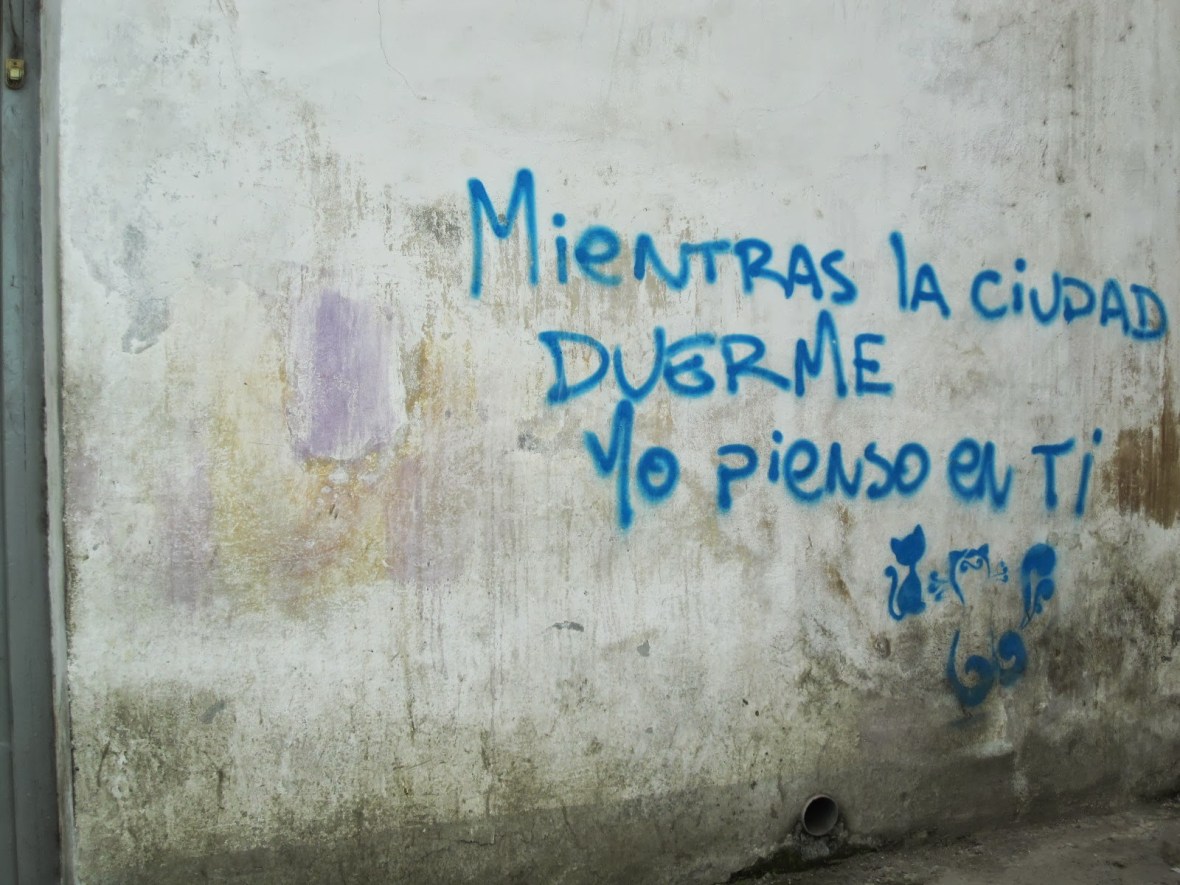 Mientras la ciudad
duerme
yo pienso en ti